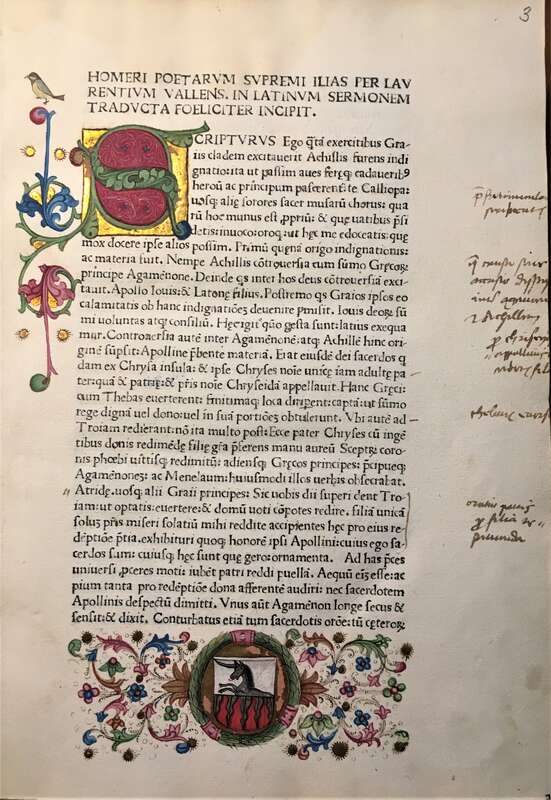 3
HOMERI POETARVM SVPREMI ILIAS PER LAV
RENTIVM VALLENS. IN LATINVM SERMONEM
TRADVCTA FOELICITER INCIPIT.
SCRIPTVRVS Ego q̃ta exercitibus Gra-
iis cladem excitauerit Achillis furens indi
gnatio: ita ut passim aues feręq; cadaueribꝰ
heroũ ac principum pascerent: te Calliopa:
uosq; alię sorores sacer musarũ chorus: qua
rũ hoc munus est ꝓpriũ: & quę uatibus p̃si
detis: inuoco: oroq; ut hęc me edoceatis: quę
mox docere ipse alios possim. Primũ quęnã origo indignationis:
ac materia fuit. Nempe Achillis cõtrouersia cum sũmo Gręcoꝝ
principe Agamẽnone. Deinde q̃s inter hos deus cõtrouersiã exci-
tauit. Apollo Iouis: & Latonę filius. Postremo q̃s Graios ipsos eo
calamitatis ob hanc indignatiõeʒ deuenire p̃misit. Iouis deoꝝ sũ
mi uoluntas atq; consiliũ. Hęc igit᷑ quo gesta sunt: latius exequa
mur. Controuersia autẽ inter Agamẽnonẽ: atq; Achillẽ hinc ori-
ginẽ sũpsit: Apolline p̃bente materiã. Erat eiusdẽ dei sacerdos q
dam ex Chrysa insula: & ipse Chryses noĩe
ter: quã & patrię: & p̃ris noĩe Chryseida appellauit. Hanc Gręci:
cum Thebas euerterent: finitimaq; loca diriperent: captã: ut sũmo
rege dignã uel dono: uel in suã portiõeʒ obtulerunt. Vbi autẽ ad
Troiam redierant: nõ ita multo post: Ecce pater Chryses cũ ingẽ
tibus donis redimẽdę filię grã p̃ferens manu aureũ Sceptꝝ: coro-
nis phœbi uittisq; redimitũ: adiensq; Gręcos principes: p̃cipueq;
Agamẽnoneʒ: ac Menelaum: huiusmodi illos uerbis obsecrabat.
Atridę: uosq; alii Graii principes: Sic uobis dii superi dent Tro
iam: ut optatis: euertere: & domũ uoti cõpotes redire. filiã unicã
solus p̃ris miseri solatiũ mihi reddite accipientes hęc pro eius re-
dẽptiõe p̃tia. exhibituri quoq; honorẽ ipsi Apollini: cuius ego sa-
cerdos sum: cuiusq; hęc sunt quę gero: ornamenta. Ad has p̃ces
uniuersi ꝓceres moti: iubẽt patri reddi puellã. Aequũ eĩʒ esse: ac
pium tanta pro redẽptiõe dona afferentẽ audiri: nec sacerdotem
Apollinis despectũ dimitti. Vnus aũt Agamẽnon longe secus &
sensit: & dixit. Conturbatus etiã tum sacerdotis orõe: tũ cęteroꝝ